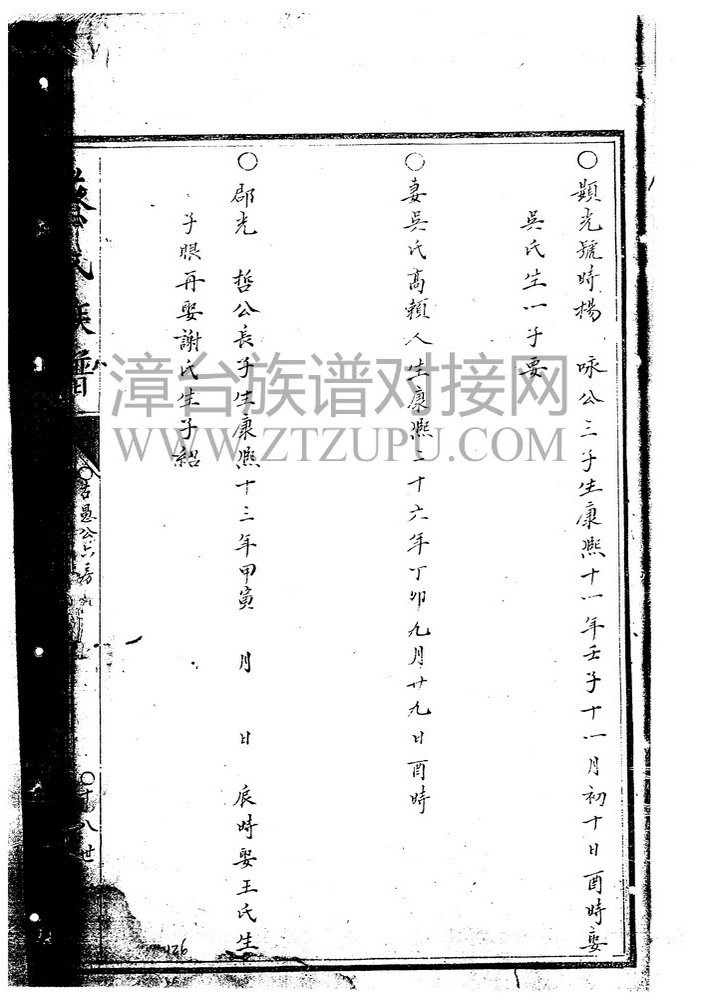 ○顯光號時楊 咏公三子生康熙十一年壬子十一月初十日酉時娶
吳氏生一子要
○妻吳氏高賴人生康熙二十六年丁卯九月廿九日酉時
○郡光 哲公長子生康熙十三年甲寅 月 日 辰時娶王氏生
子眼再娶謝氏生子紹
氏族譜
愚公六房
○十八世
126
漳台族谱对接网
WWW.ZTZUPU.COM